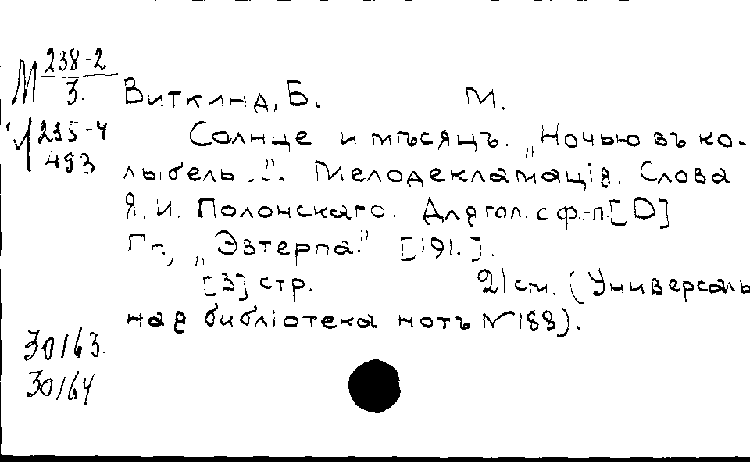 М 238-2
3.
Виткинд, Б. М.
М 235-4
493
Солнце и мѣсяцъ. „Ночью въ ко-
лыбель..." Мелодекламація. Слова
Я. И. Полонскаго. Для гол. с ф.-п. [D]
Пг., „Эвтерпа." [191.].
[3] стр. 21 см. (Универсаль
ная библіотека нотъ № 188).
30163.
30164